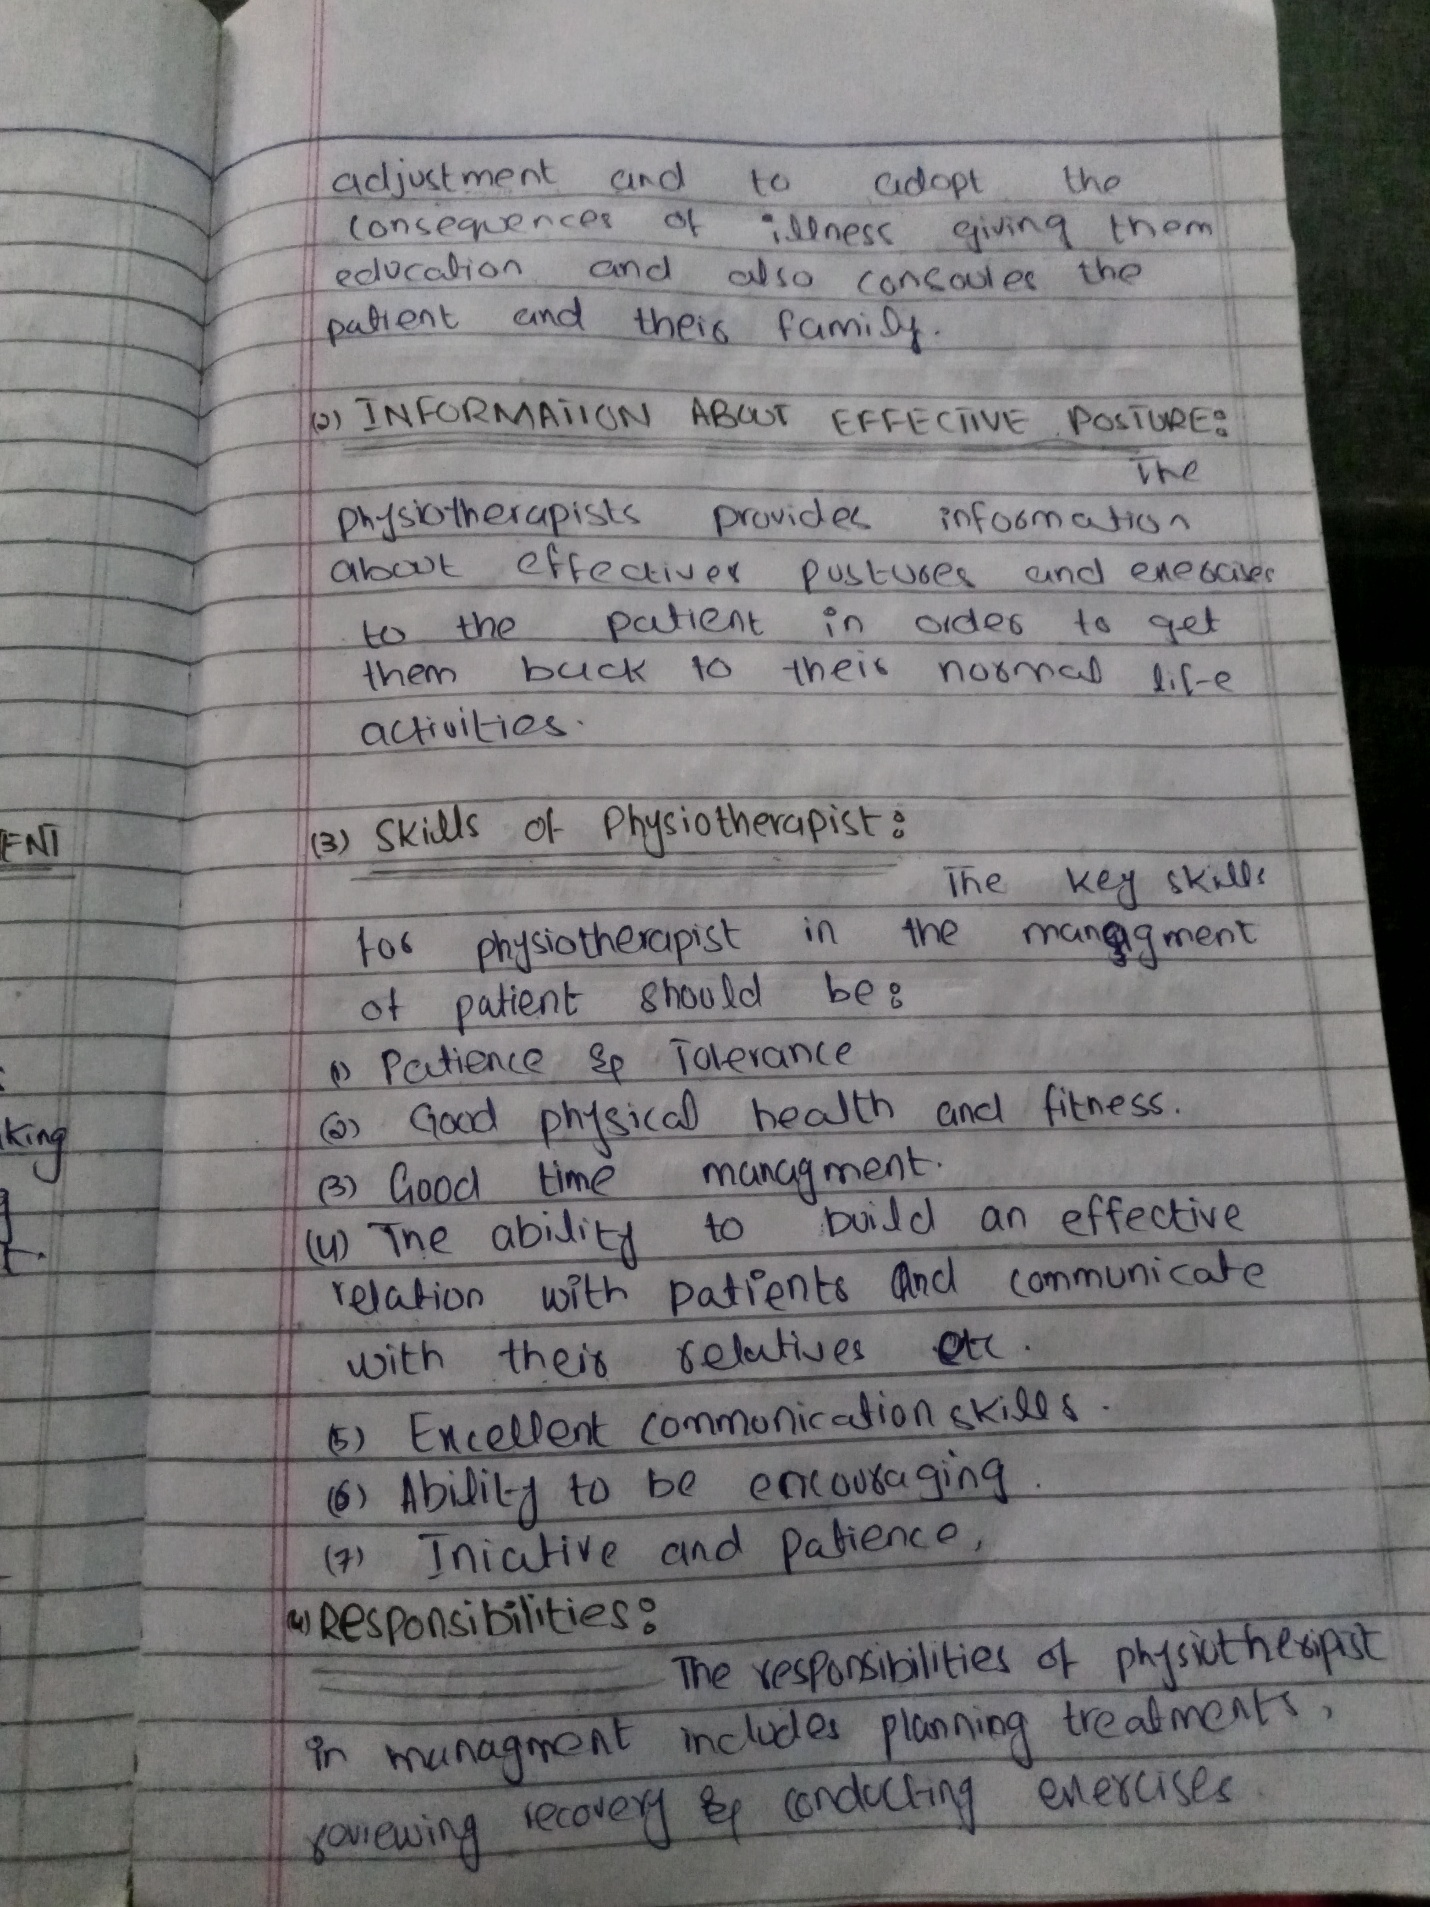 adjustment and to adopt the
consequences of illness giving them
education and also consoules the
patient and their family.
(2) INFORMATION ABOUT EFFECTIVE POSTURE:
The
physiotherapists provides information
about effectives postures and exercises
to the patient in order to get
them back to their normal life
activities.
ENT
(3) Skills of Physiotherapist:
The key skills
for physiotherapist in the managment
of patient should be:
(1) Patience & Tolerance
(2) Good physical health and fitness.
king
(3) Good time managment.
(4) The ability to build an effective
relation with patients and communicate
with their relatives etc.
(5) Excellent communication skills.
(6) Ability to be encouraging.
(7) Iniative and patience,
(4) Responsibilities:
The responsibilities of physiotheripist
in managment includes planning treatments,
reviewing recovery & conducting exercises